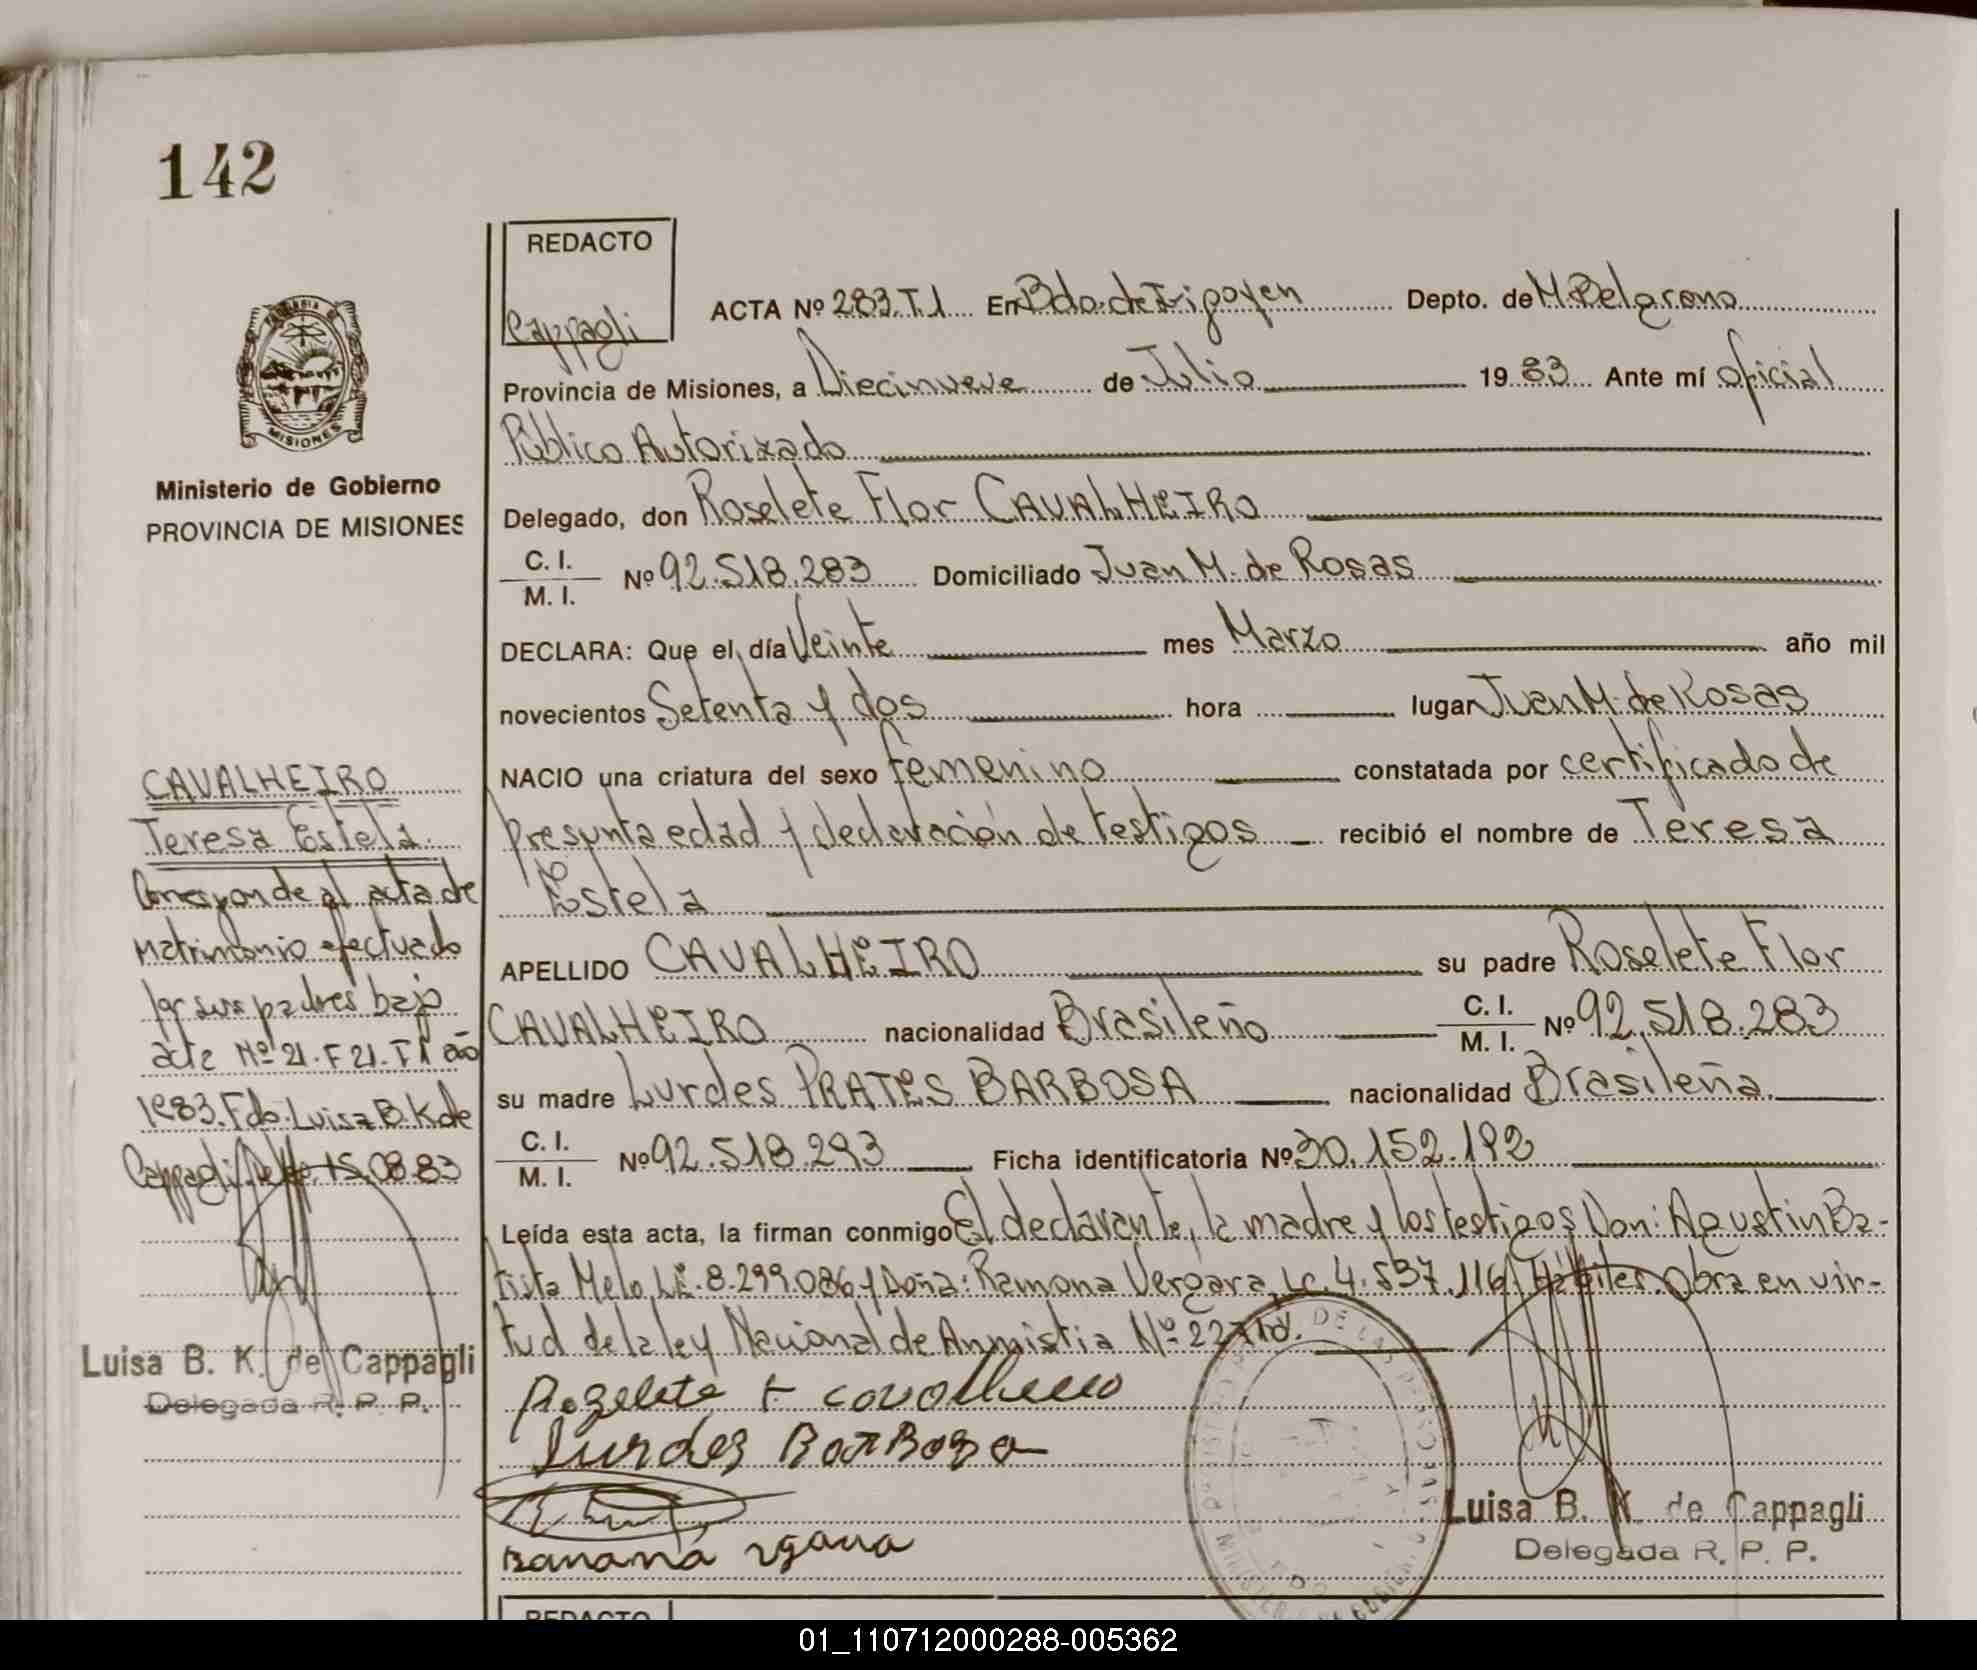 142
REDACTO
Cappagli
ACTA Nº 283.T.1 En Bdo. de Irigoyen Depto. de M. Belgrano
Provincia de Misiones, a Diecinueve de Julio 1983 Ante mí oficial
Público Autorizado
Delegado, don Roselete Flor CAVALHEIRO
C. I.
M. I.
Nº 92.518.283 Domiciliado Juan M. de Rosas
DECLARA: Que el día Veinte mes Marzo año mil
novecientos Setenta y dos hora lugar Juan M. de Rosas
NACIO una criatura del sexo femenino constatada por certificado de
presunta edad y declaración de testigos recibió el nombre de Teresa
Estela
APELLIDO CAVALHEIRO su padre Roselete Flor
CAVALHEIRO nacionalidad Brasileño C. I. M. I. Nº 92.518.283
su madre Lurdes PRATES BARBOSA nacionalidad Brasileña
C. I.
M. I.
Nº 92.518.293 Ficha identificatoria Nº 30.152.192
Leída esta acta, la firman conmigo El declarante, la madre y los testigos Don: Agustin Ba-
tista Melo LE. 8.299.086 y Doña: Ramona Vergara, Lc. 4.537.116. Hábiles. Obra en vir-
tud de la ley Nacional de Anmistia Nº
Rozelete F cavalheiro
Lurdes Barboza
Luisa B. K. de Cappagli
Delegada R. P. P.
MISIONES
Ministerio de Gobierno
PROVINCIA DE MISIONES
CAVALHEIRO
Teresa Estela.
Corresponde al acta de
Matrimonio efectuado
por sus padres bajo
acta Nº 21. F 21. T 1 año
1983. Fdo. Luisa B. K de
Cappagli. 15.08.83
Luisa B. K. de Cappagli
Delegada R. P. P.
REDACTO
01_110712000288-005362